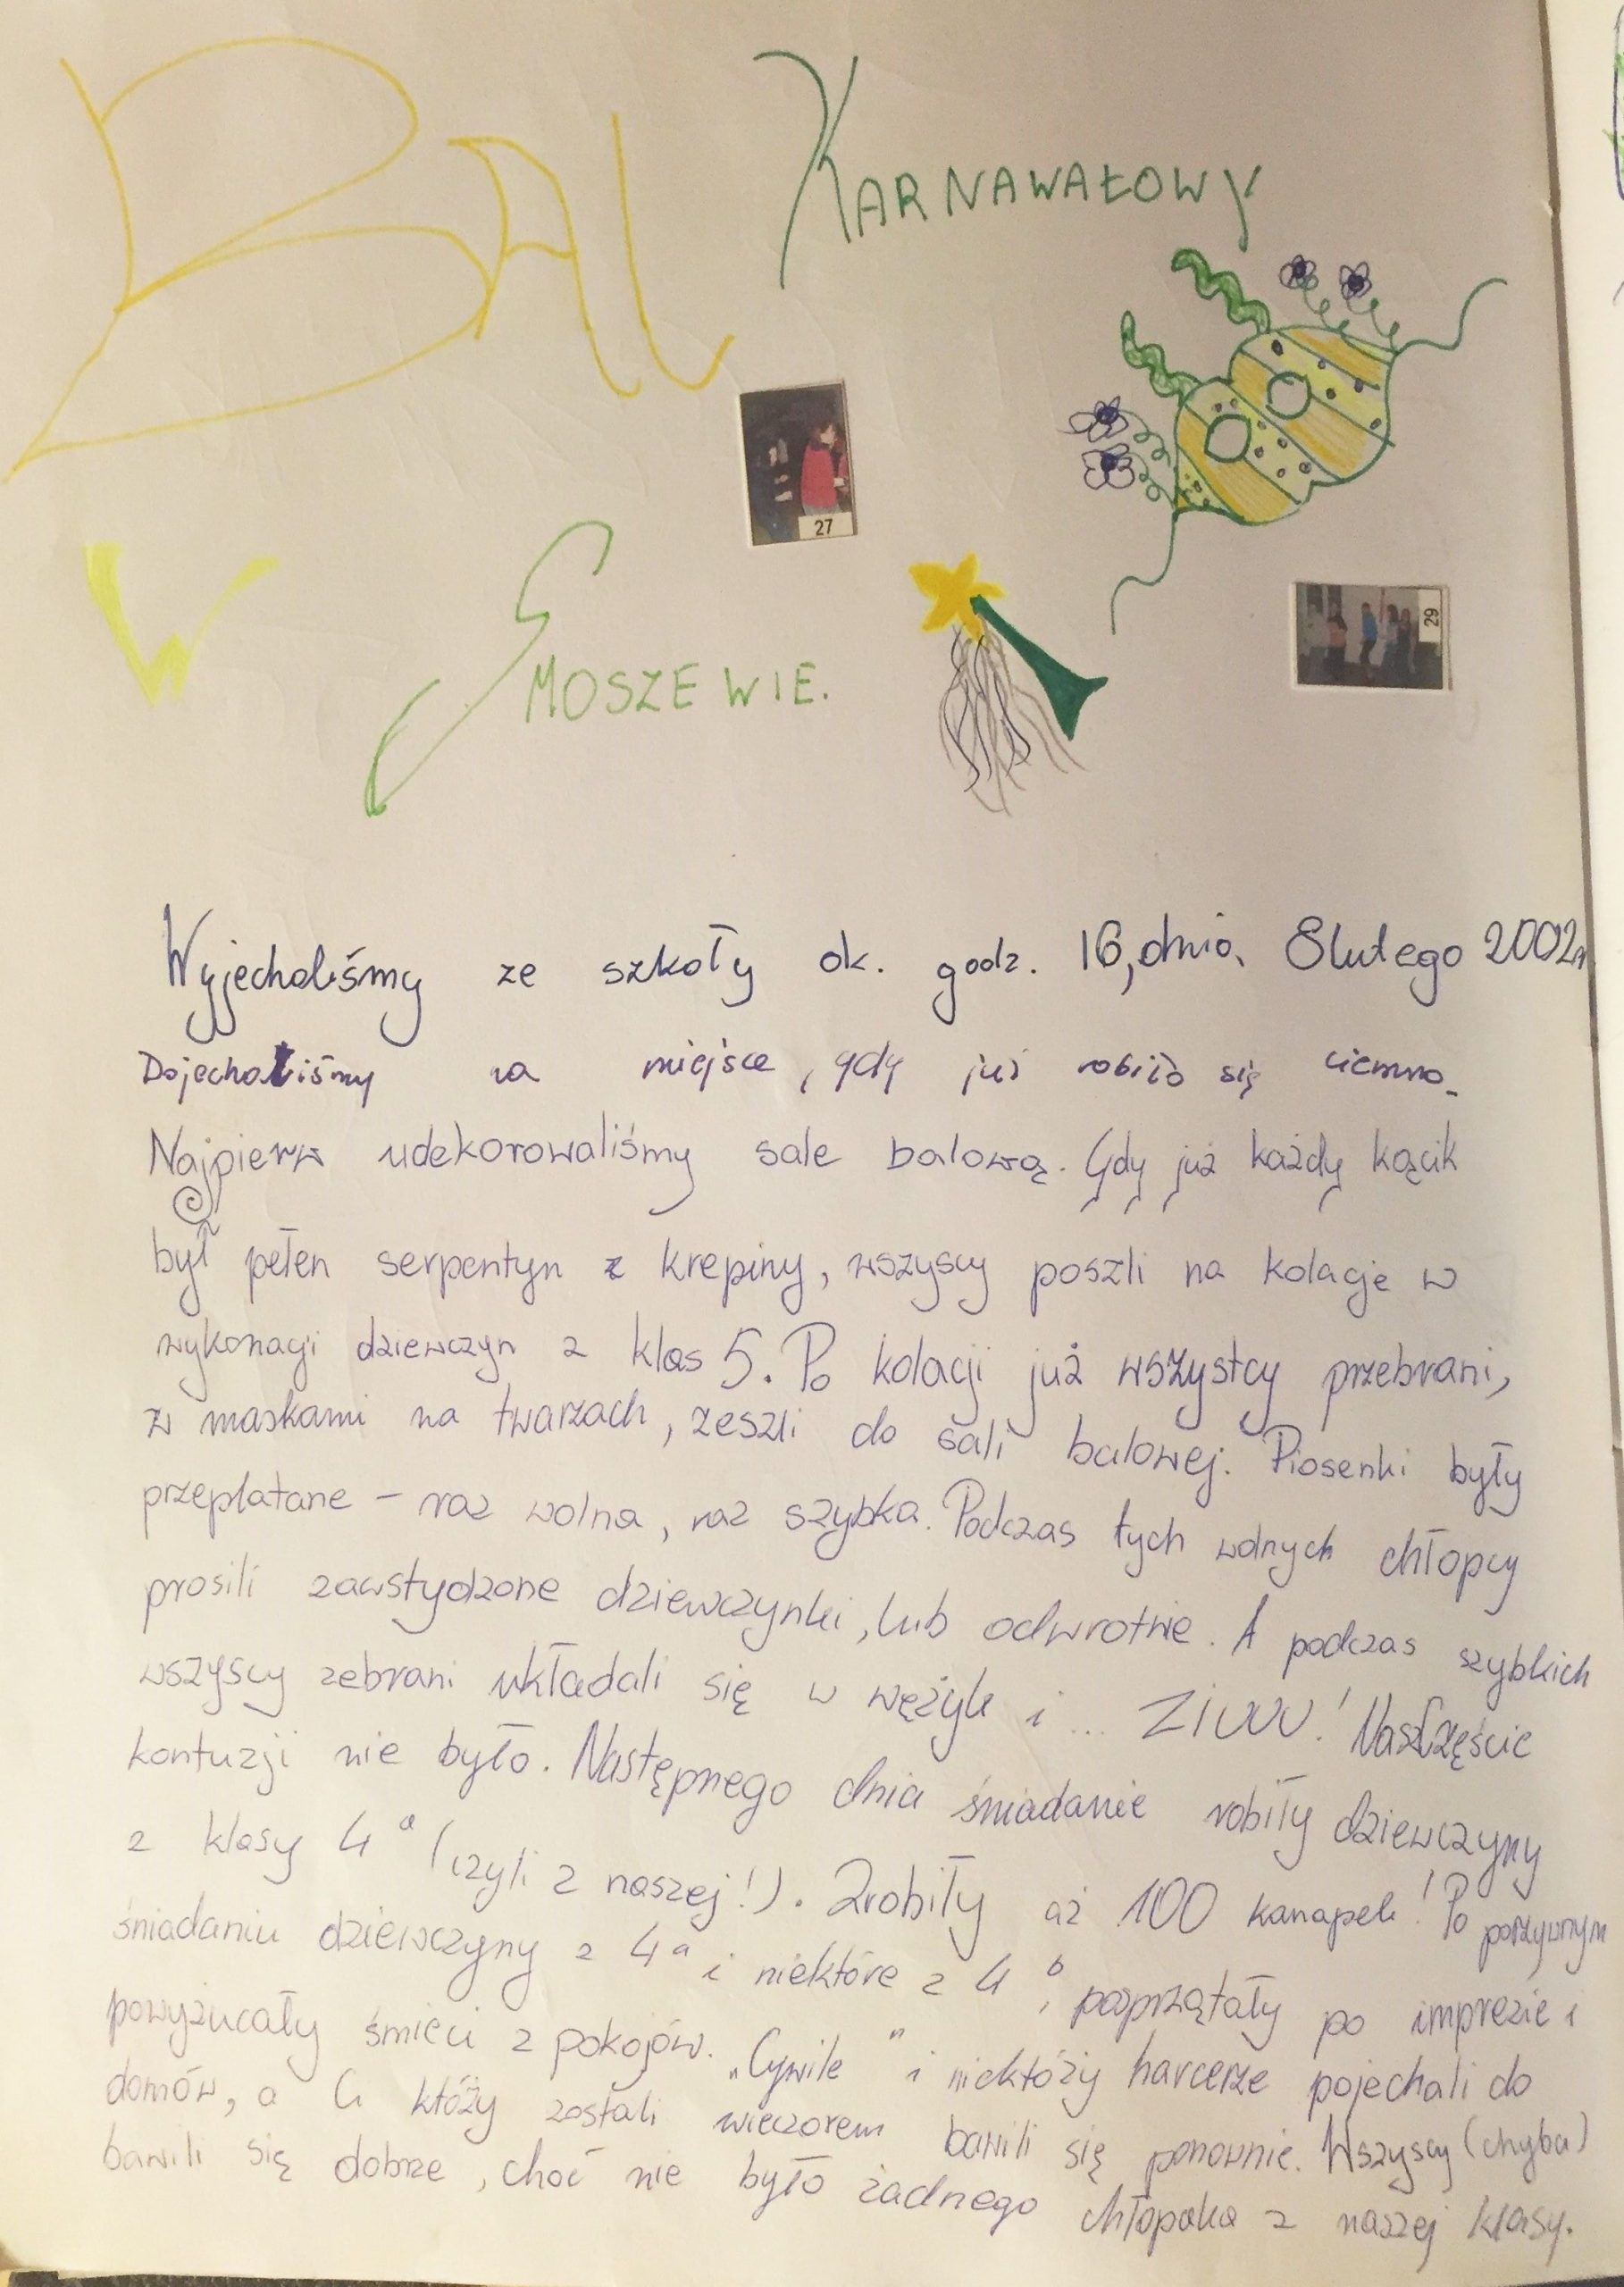 BAL KARNAWAŁOWY
27
W SMOSZEWIE.
29
Wyjechaliśmy ze szkoły ok. godz. 16, dnia 8 lutego 2002r
Dojechaliśmy na miejsce, gdy już robiło się ciemno.
Najpierw udekorowaliśmy sale balową. Gdy już każdy kącik
był pełen serpentyn z krepiny, wszyscy poszli na kolacje w
wykonacji dziewczyn z klas 5. Po kolacji już wszystcy przebrani,
z maskami na twarzach, zeszli do sali balowej. Piosenki były
przeplatane - raz wolna, raz szybka. Podczas tych wolnych chłopcy
prosili zawstydzone dziewczynki, lub odwrotnie. A podczas szybkich
wszyscy zebrani układali się w wężyk i ... ZIUUU! Naszczęście
kontuzji nie było. Następnego dnia śniadanie robiły dziewczyny
z klasy 4a (czyli z naszej!). Zrobiły aż 100 kanapek! Po pożywnym
śniadaniu dziewczyny z 4a i niektóre z 4b, poprzątały po imprezie i
powyżucały śmieci z pokojów. „Cywile" i niektóży harcerze pojechali do
domów, a Ci któży zostali wieczorem bawili się ponownie. Wszyscy (chyba)
bawili się dobrze, choć nie było żadnego chłopaka z naszej klasy.